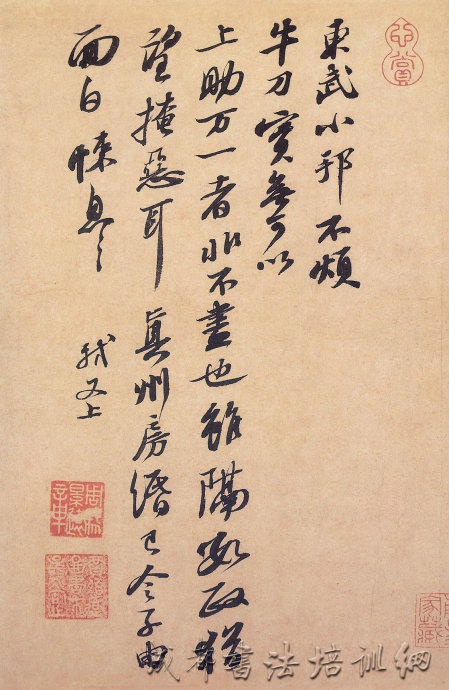 東武小邦不煩
牛刀實無可以
上助万一者非不盡也雖隔數政猶
望掩惡耳真州房緡已令子由
面白悚息々
軾又上
書法培訓網